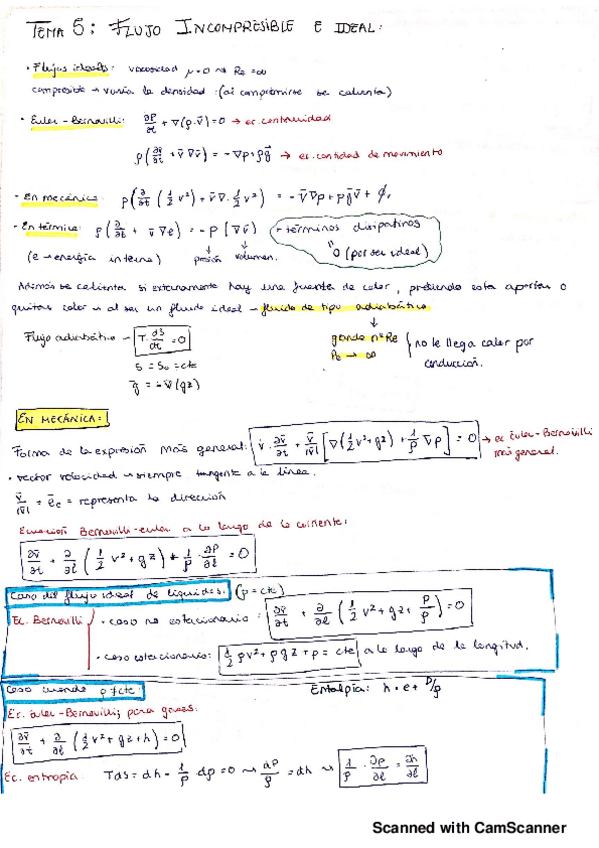 TEMA 5: FLUJO INCOMPRESIBLE E IDEAL:
• Flujos ideales: viscosidad μ=0 → Re=∞
compresible → varía la densidad: (al comprimirse se calienta)
• Euler-Bernoulli: ∂ρ/∂t + ∇(ρ·v̄)=0 → ec. continuidad
ρ(∂v̄/∂t + v̄∇v̄) = -∇p + ρḡ → ec. cantidad de movimiento
• En mecánica: ρ(∂/∂t (1/2 v²) + v̄∇·1/2 v²) = -v̄∇p + ρḡv̄ + ϕv
• En térmica: ρ(∂/∂t + v̄∇e) = -P(∇v̄) + términos disipativos
(e → energía interna) presión volumen. 0 (por ser ideal)
Además se calienta si externamente hay una fuente de calor, pudiendo esta aportar o
quitar calor → al ser un fluido ideal → fluido de tipo adiabático
Flujo adiabático → T·dS/dt = 0
grande nº Re
Pe → ∞
no le llega calor por conducción.
S = S₀ = cte
ḡ = -∇(gz)
EN MECÁNICA:
Forma de la expresión más general: v̄·∂v̄/∂t + v̄/|v̄| [∇(1/2 v²+gz) + 1/ρ ∇p] = 0 → ec Euler-Bernoulli más general.
• vector velocidad → siempre tangente a la línea.
v̄/|v̄| = ēc = representa la dirección
Ecuación Bernoulli-euler a lo largo de la corriente:
∂v̄/∂t + ∂/∂l (1/2 v² + gz) + 1/ρ · ∂P/∂l = 0
Caso del flujo ideal de líquidos: (ρ = cte)
Ec. Bernoulli
• caso no estacionario: ∂v̄/∂t + ∂/∂l (1/2 v² + gz + P/ρ) = 0
• caso estacionario: 1/2 ρv² + ρgz + p = cte a lo largo de la longitud.
Caso cuando ρ ≠ cte: Entalpía: h = e + P/ρ
Ec. euler-Bernoulli; para gases:
∂v̄/∂t + ∂/∂l (1/2 v² + gz + h) = 0
Ec. entropía. Tds = dh - 1/ρ dp = 0 → dP/ρ = dh → 1/ρ · ∂P/∂l = ∂h/∂l
Scanned with CamScanner